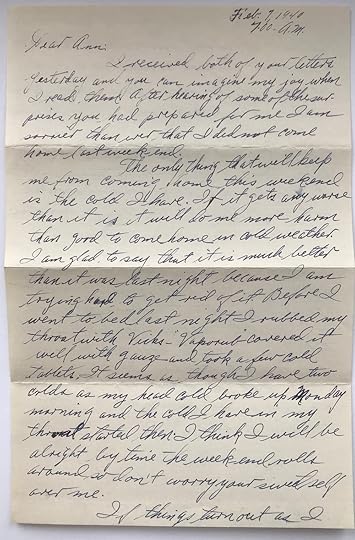 Feb. 7, 1940
7:00 A.M.
Dear Ann:
I received both of your letters
yesterday and you can imagine my joy when
I read them. After hearing of some of the sur-
prises you had prepared for me I am
sorrier than ever that I did not come
home last week end.
The only thing that will keep
me from coming home this weekend
is the cold I have. If it gets any worse
than it is it will do me more harm
than good to come home in cold weather
I am glad to say that it is much better
than it was last night because I am
trying hard to get red of it. Before I
went to bed last night I rubbed my
throat with Vicks Vaporub covered it
well with gauze and took a few cold
tablets. It seems as though I have two
colds as my head cold broke up Monday
morning and the cold I have in my
throat started then. I think I will be
alright by time the week end rolls
around so don't worry your sweet self
over me.
If things turn out as I